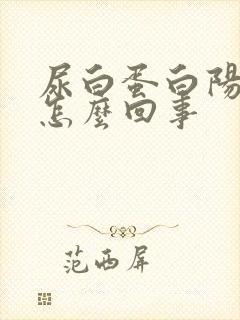 尿白蛋白陽
怎麼回事
范西屏